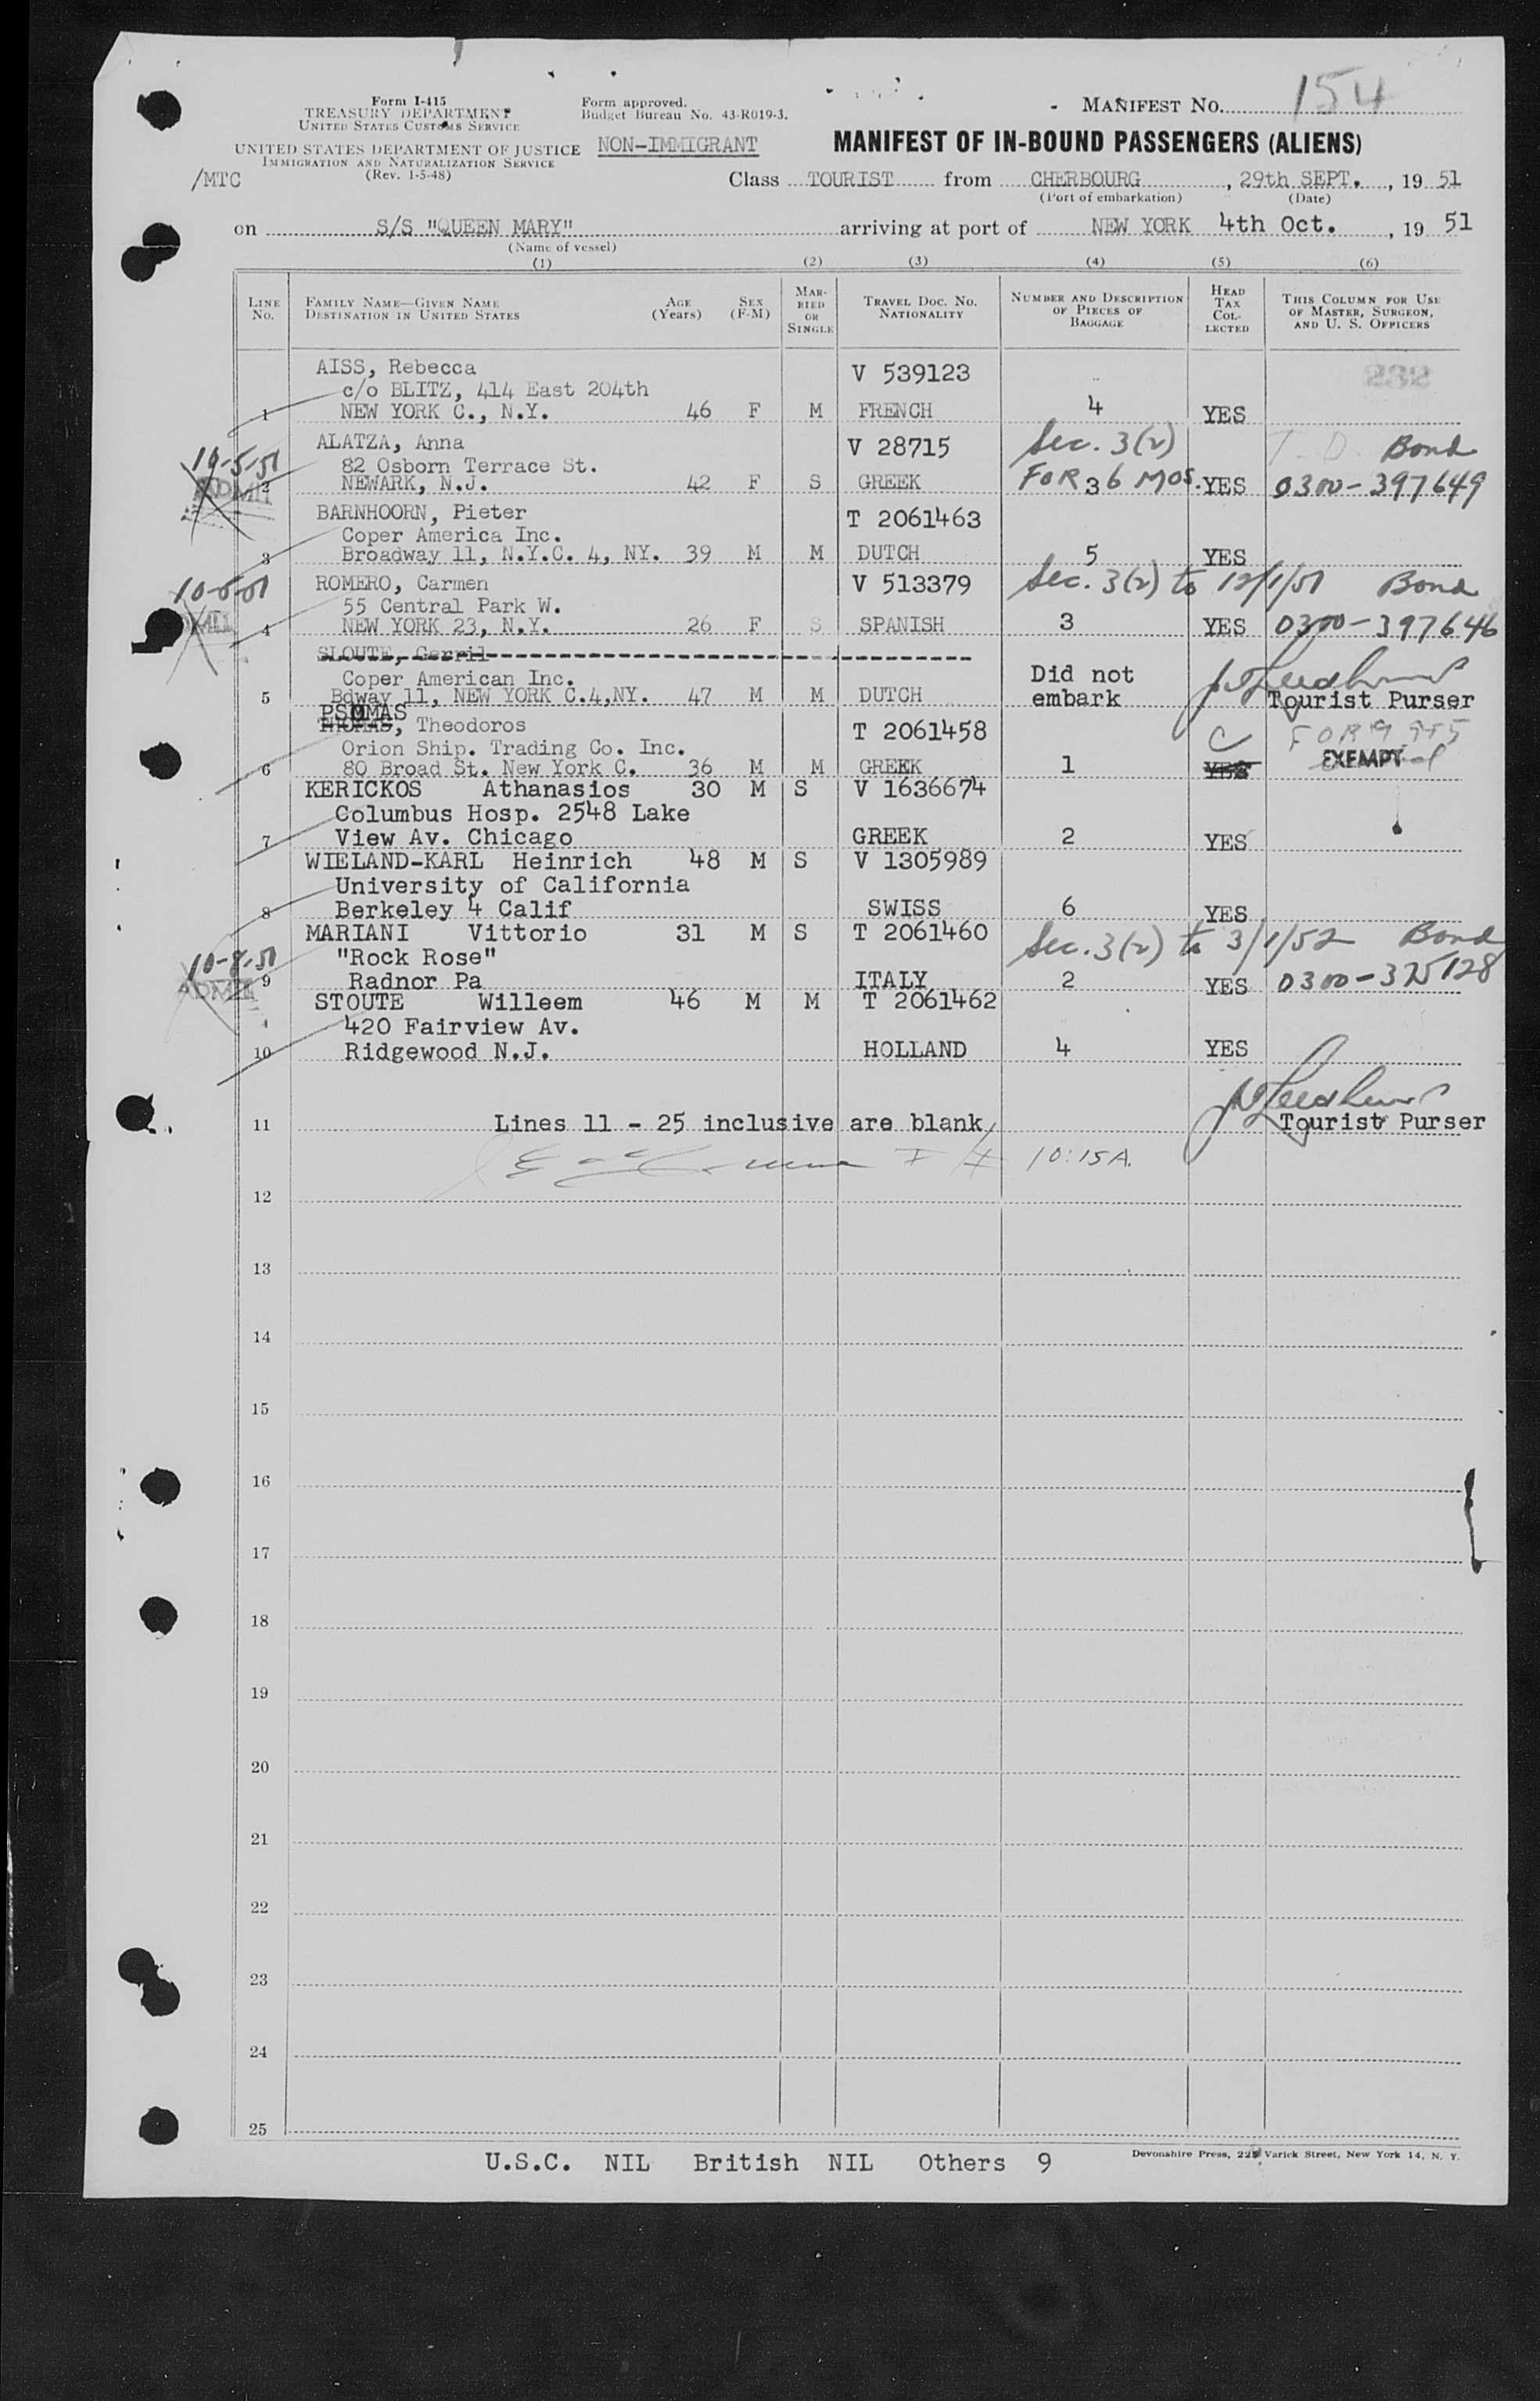 Form I-415
TREASURY DEPARTMENT
UNITED STATES CUSTOMS SERVICE
UNITED STATES DEPARTMENT OF JUSTICE
IMMIGRATION AND NATURALIZATION SERVICE
(Rev. 1-5-48)
/MTC
Form approved.
Budget Bureau No. 43-R019-3.
NON-IMMIGRANT
MANIFEST NO. 154
MANIFEST OF IN-BOUND PASSENGERS (ALIENS)
Class TOURIST from CHERBOURG, 29th SEPT., 19 51
(Port of embarkation) (Date)
on S/S "QUEEN MARY" arriving at port of NEW YORK 4th Oct., 19 51
(Name of vessel)
(1) (2) (3) (4) (5) (6)
LINE NO. FAMILY NAME—GIVEN NAME DESTINATION IN UNITED STATES AGE (Years) SEX (F-M) MARRIED OR SINGLE TRAVEL DOC. NO. NATIONALITY NUMBER AND DESCRIPTION OF PIECES OF BAGGAGE HEAD TAX COLLECTED THIS COLUMN FOR USE OF MASTER, SURGEON, AND U. S. OFFICERS
AISS, Rebecca V 539123 232
c/o BLITZ, 414 East 204th
1 NEW YORK C., N.Y. 46 F M FRENCH 4 YES
ALATZA, Anna V 28715 Sec. 3(2) T. D. Bond
10-5-51 82 Osborn Terrace St.
ADMIT 2 NEWARK, N.J. 42 F S GREEK FOR 3 6 MOS. YES 0300-397649
BARNHOORN, Pieter T 2061463
Coper America Inc.
3 Broadway 11, N.Y.C. 4, NY. 39 M M DUTCH 5 YES
10-5-51 ROMERO, Carmen V 513379 Sec. 3(2) to 12/1/51 Bond
55 Central Park W.
4 NEW YORK 23, N.Y. 26 F S SPANISH 3 YES 0300-397646
SLOUTE, Gerril
Coper American Inc. Did not
5 Bdway 11, NEW YORK C.4,NY. 47 M M DUTCH embark Tourist Purser
PSOMAS
THOMAS, Theodoros T 2061458 C
Orion Ship. Trading Co. Inc.
6 80 Broad St. New York C. 36 M M GREEK 1 YES EXEMPT
KERICKOS Athanasios 30 M S V 1636674
Columbus Hosp. 2548 Lake
7 View Av. Chicago GREEK 2 YES
WIELAND-KARL Heinrich 48 M S V 1305989
University of California
8 Berkeley 4 Calif SWISS 6 YES
MARIANI Vittorio 31 M S T 2061460 Sec. 3(2) to 3/1/52 Bond
10-8-51 "Rock Rose"
ADMIT 9 Radnor Pa ITALY 2 YES 0300-375128
STOUTE Willeem 46 M M T 2061462
420 Fairview Av.
10 Ridgewood N.J. HOLLAND 4 YES
11 Lines 11 - 25 inclusive are blank Tourist Purser
10:15A.
12
13
14
15
16
17
18
19
20
21
22
23
24
25
U.S.C. NIL British NIL Others 9
Devonshire Press, 225 Varick Street, New York 14, N. Y.